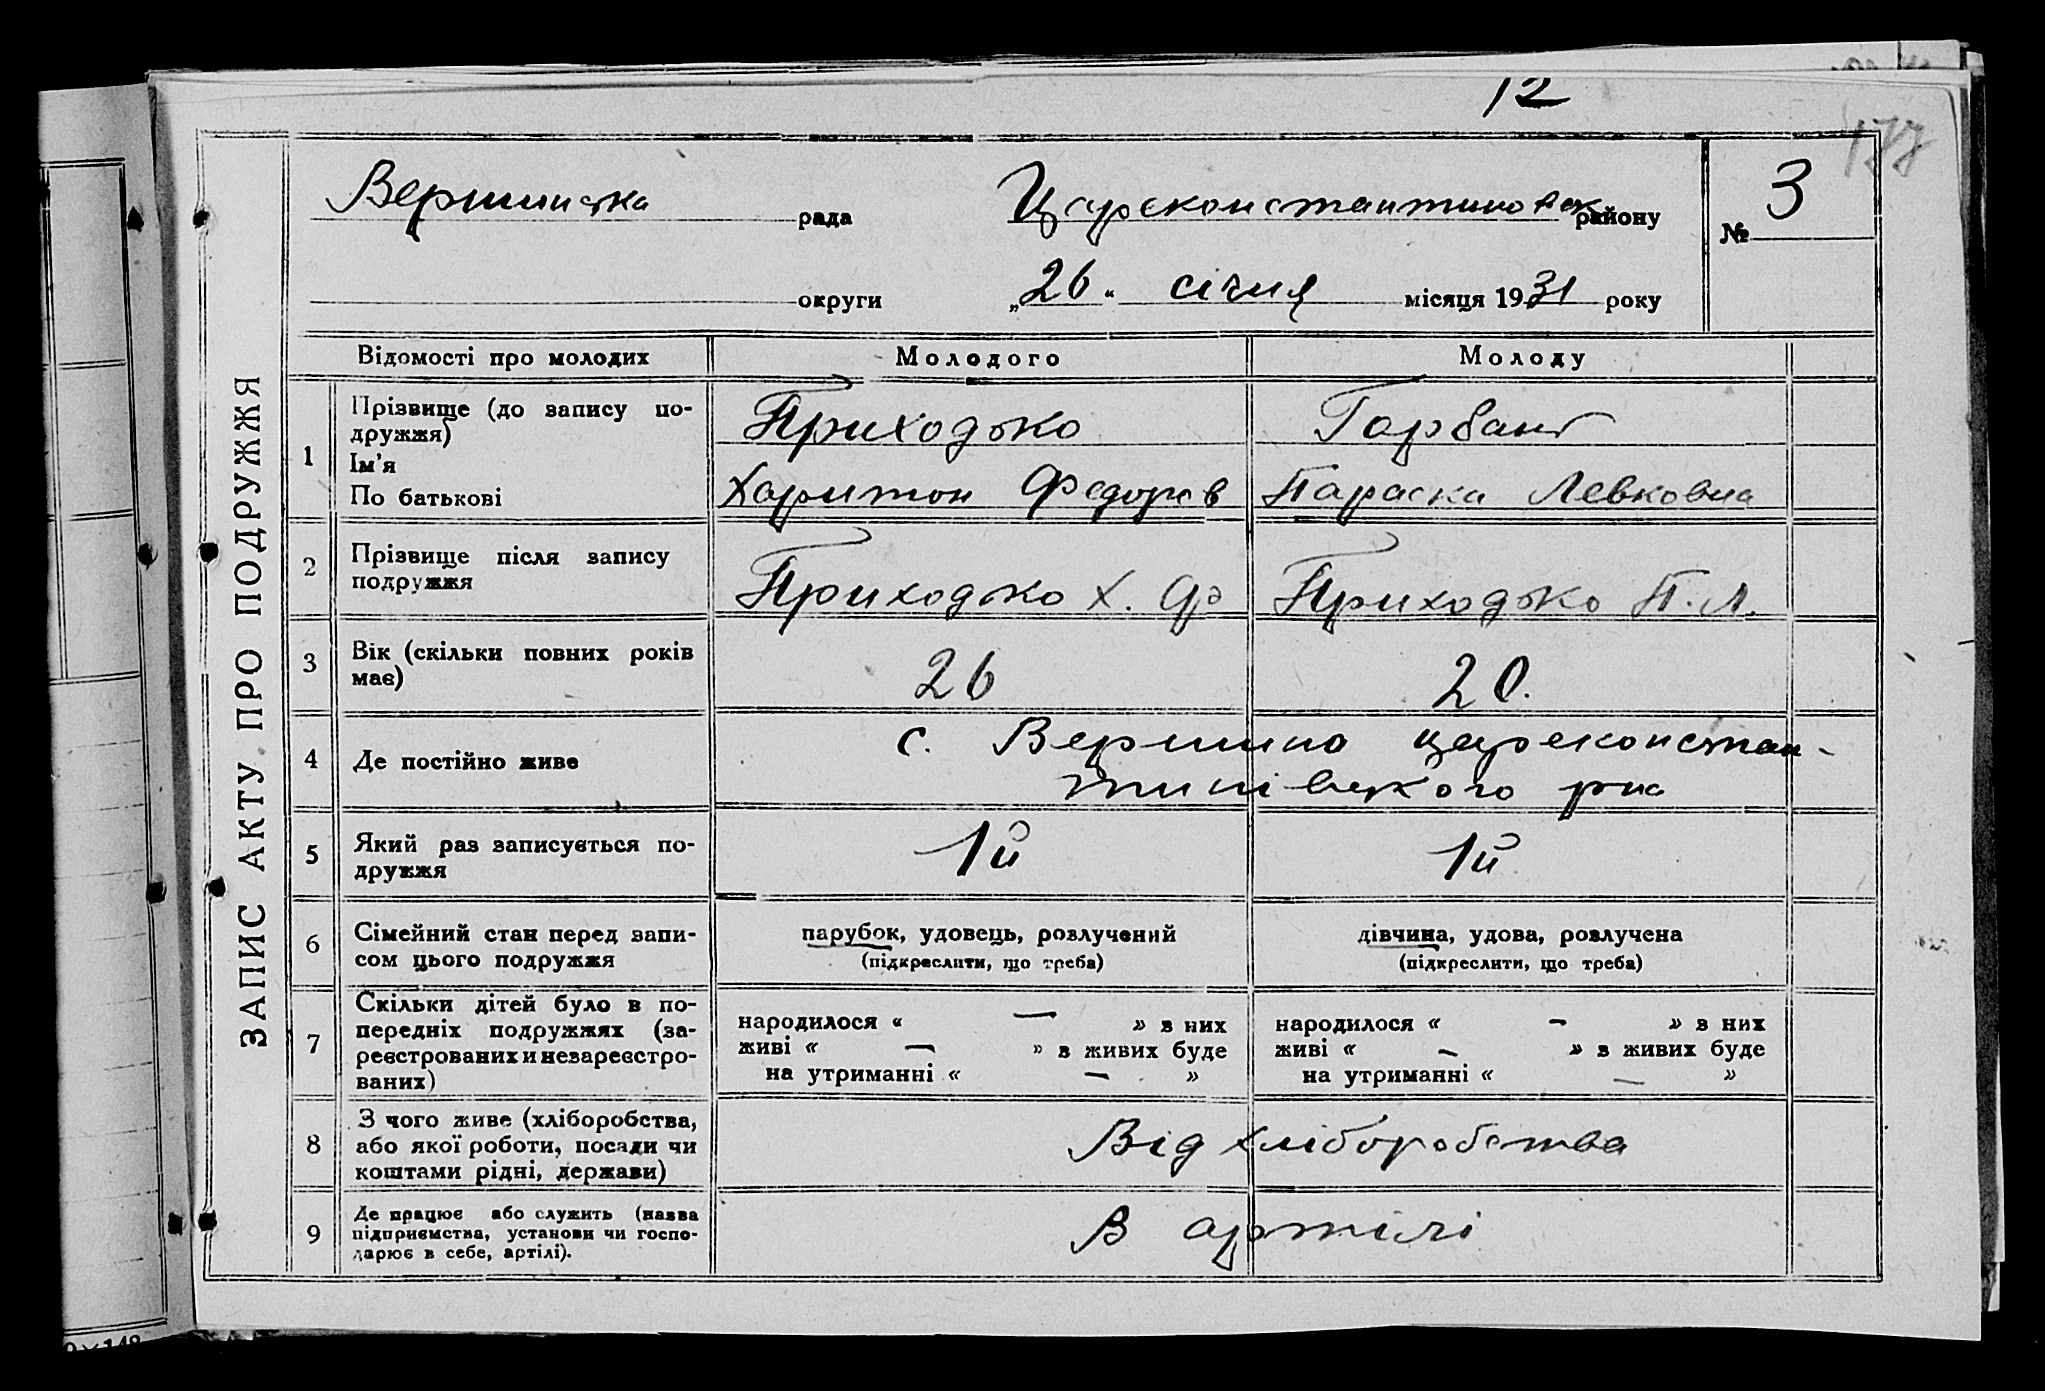 12
177
Вершинска рада Цареконстантиновск району № 3
округи „26“ січня місяця 1931 року
ЗАПИС АКТУ ПРО ПОДРУЖЖЯ
Відомості про молодих Молодого Молоду
1 Прізвище (до запису по-
дружжя) Приходько Горбань
Ім'я
По батькові Харитон Федоров Параска Левковна
2 Прізвище після запису
подружжя Приходько Х. Ф Приходько П. Л.
3 Вік (скільки повних років
має) 26 20.
4 Де постійно живе с. Вершино цареконстан-
тинівского рна
5 Який раз записується по-
дружжя 1й 1й
6 Сімейний стан перед запи- парубок, удовець, розлучений дівчина, удова, розлучена
сом цього подружжя (підкреслити, що треба) (підкреслити, що треба)
7 Скільки дітей було в по-
передніх подружжях (за- народилося « — » з них народилося « — » з них
реєстрованих и незареєстро- живі « — » з живих буде живі « — » з живих буде
ваних) на утриманні « — » на утриманні « — »
8 З чого живе (хліборобства,
або якої роботи, посади чи Від хліборобства
коштами рідні, держави)
9 Де працює або служить (назва
підприємства, установи чи госпо- В артілі
дарює в себе, артілі).